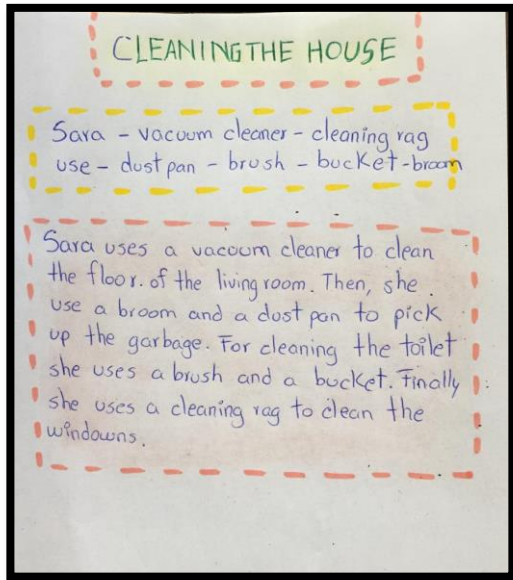 CLEANING THE HOUSE
Sara - vacuum cleaner - cleaning rag
use - dust pan - brush - bucket - broom
Sara uses a vacuum cleaner to clean
the floor. of the living room. Then, she
use a broom and a dust pan to pick
up the garbage. For cleaning the toilet
she uses a brush and a bucket. Finally
she uses a cleaning rag to clean the
windowns.